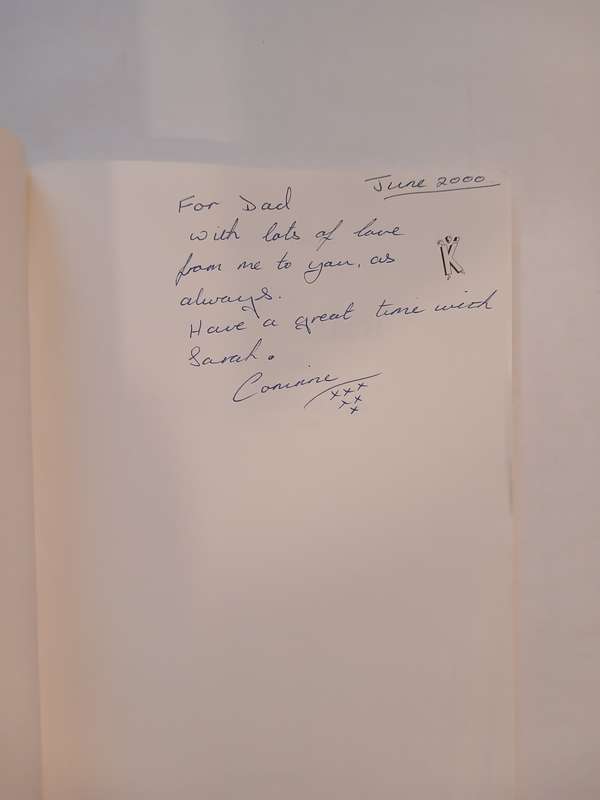 June 2000
For Dad
with lots of love
from me to you, as
always.
Have a great time with
Sarah.
Corinne
xxx
xx
x
K